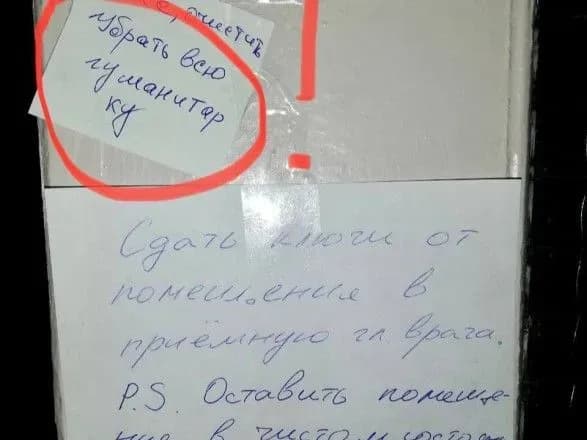 очистить
Убрать всю
гуманитар
ку
Сдать ключи от
помещения в
приёмную гл. врача.
P.S. Оставить помеще-
ние в чистом